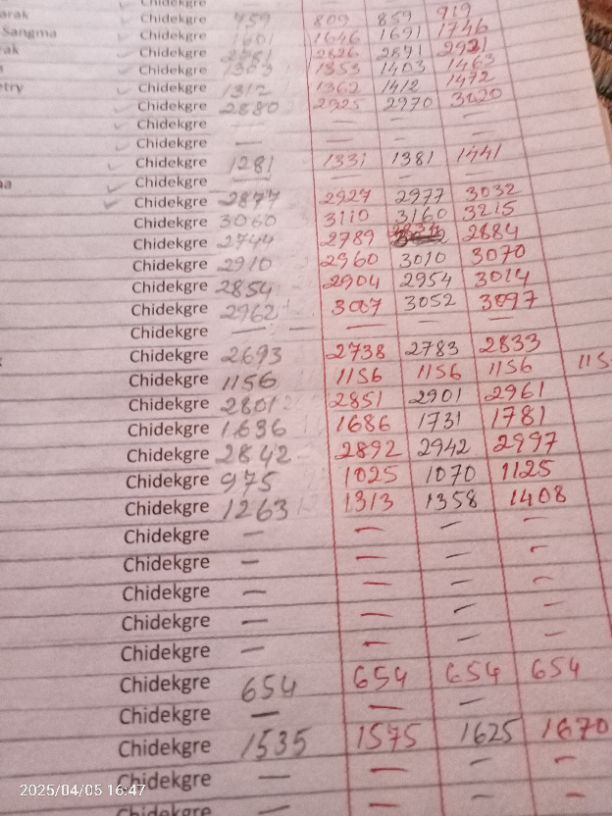 Chidekgre
arak Chidekgre 759 809 859 919
Sangma Chidekgre 1601 1646 1691 1746
rak Chidekgre 2781 2826 2871 2931
Chidekgre 1303 1353 1403 1463
etry Chidekgre 1312 1362 1412 1472
Chidekgre 2880 2925 2970 3020
Chidekgre — — — —
Chidekgre — — — —
Chidekgre 1281 1331 1381 1441
Chidekgre — — — —
na Chidekgre 2877 2927 2977 3032
Chidekgre 3060 3110 3160 3215
Chidekgre 2744 2789 2834 2884
Chidekgre 2910 2960 3010 3070
Chidekgre 2854 2904 2954 3014
Chidekgre 2962 3007 3052 3097
Chidekgre — — — —
Chidekgre 2693 2738 2783 2833
Chidekgre 1156 1156 1156 1156 115
Chidekgre 2801 2851 2901 2961
Chidekgre 1636 1686 1731 1781
Chidekgre 2842 2892 2942 2997
Chidekgre 975 1025 1070 1125
Chidekgre 1263 1313 1358 1408
Chidekgre — — — —
Chidekgre — — — —
Chidekgre — — — —
Chidekgre — — — —
Chidekgre — — — —
Chidekgre 654 654 654 654
Chidekgre — — —
Chidekgre 1535 1575 1625 1670
Chidekgre — — — —
Chidekgre — — — —
2025/04/05 16:47